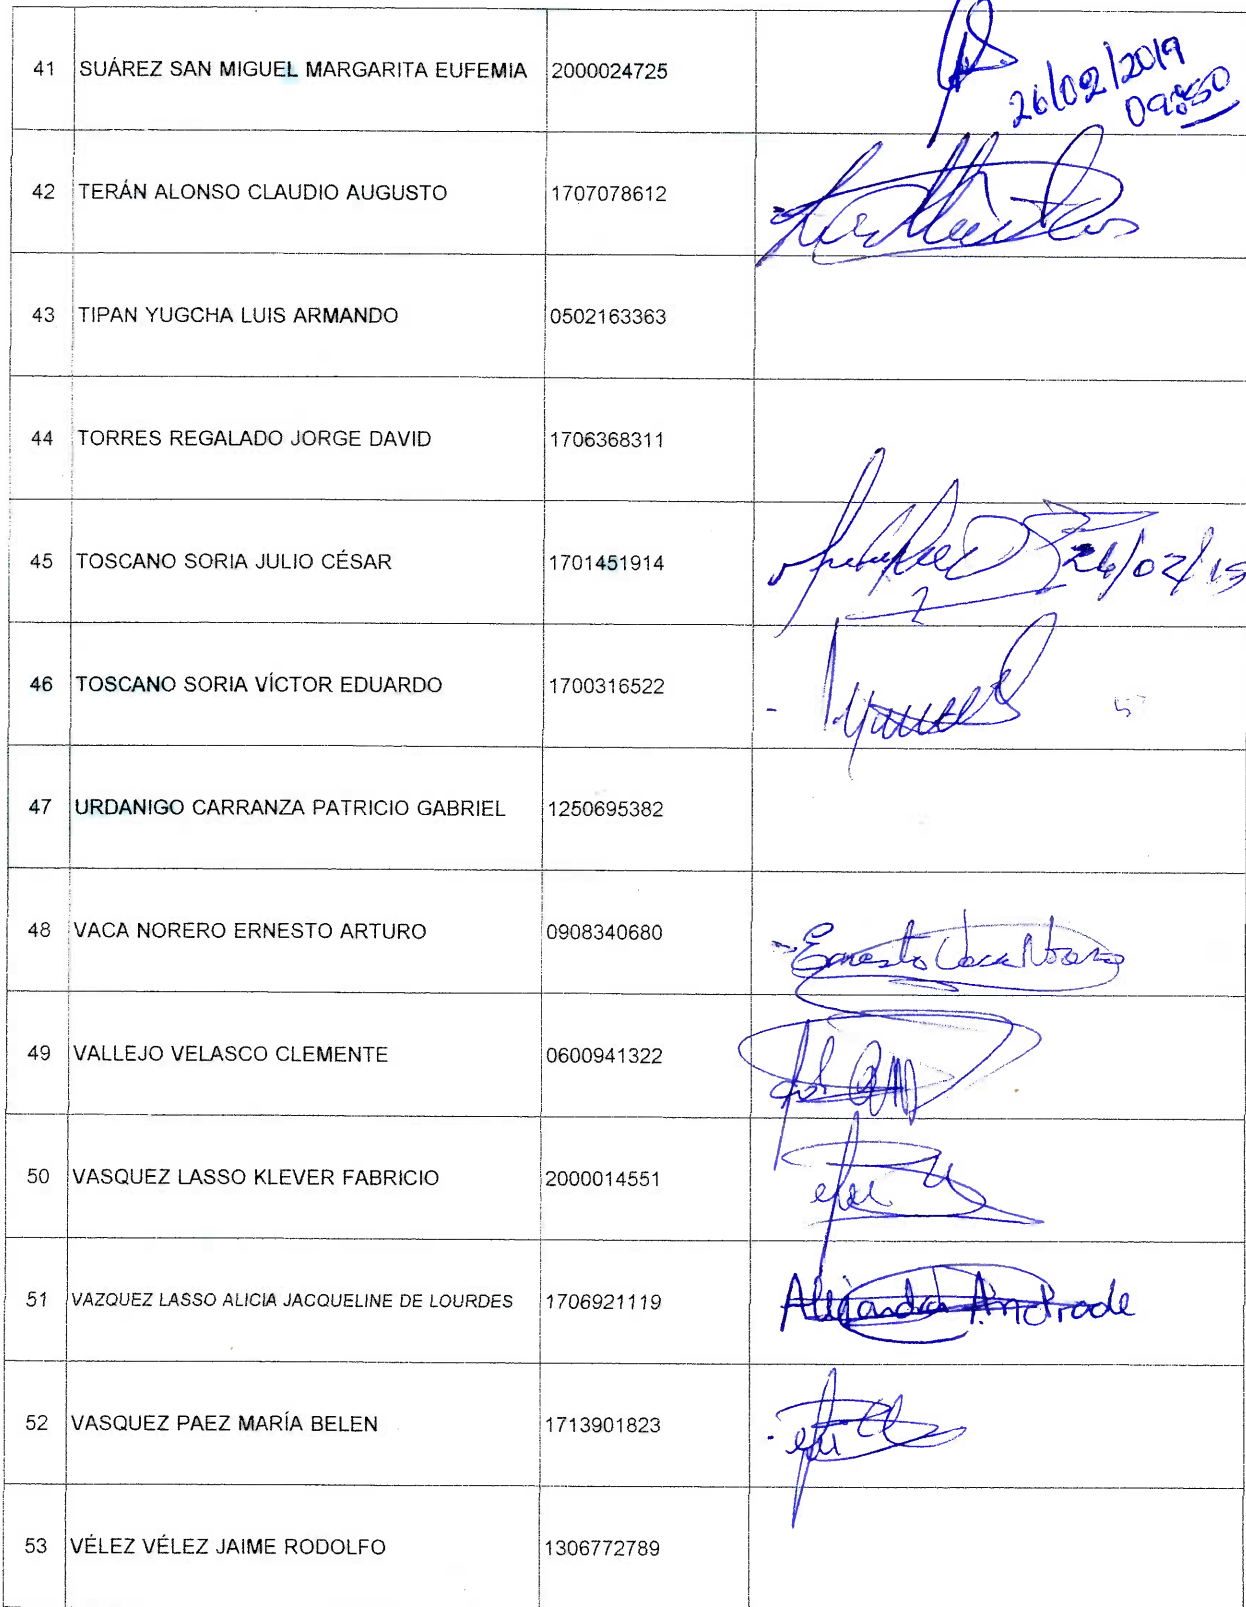 41 SUÁREZ SAN MIGUEL MARGARITA EUFEMIA 2000024725 26/02/2019
09:50
42 TERÁN ALONSO CLAUDIO AUGUSTO 1707078612
43 TIPAN YUGCHA LUIS ARMANDO 0502163363
44 TORRES REGALADO JORGE DAVID 1706368311
45 TOSCANO SORIA JULIO CÉSAR 1701451914 26/02/19
46 TOSCANO SORIA VÍCTOR EDUARDO 1700316522
47 URDANIGO CARRANZA PATRICIO GABRIEL 1250695382
48 VACA NORERO ERNESTO ARTURO 0908340680 Ernesto Vaca Norero
49 VALLEJO VELASCO CLEMENTE 0600941322
50 VASQUEZ LASSO KLEVER FABRICIO 2000014551
51 VAZQUEZ LASSO ALICIA JACQUELINE DE LOURDES 1706921119 Alejandra Andrade
52 VASQUEZ PAEZ MARÍA BELEN 1713901823
53 VÉLEZ VÉLEZ JAIME RODOLFO 1306772789